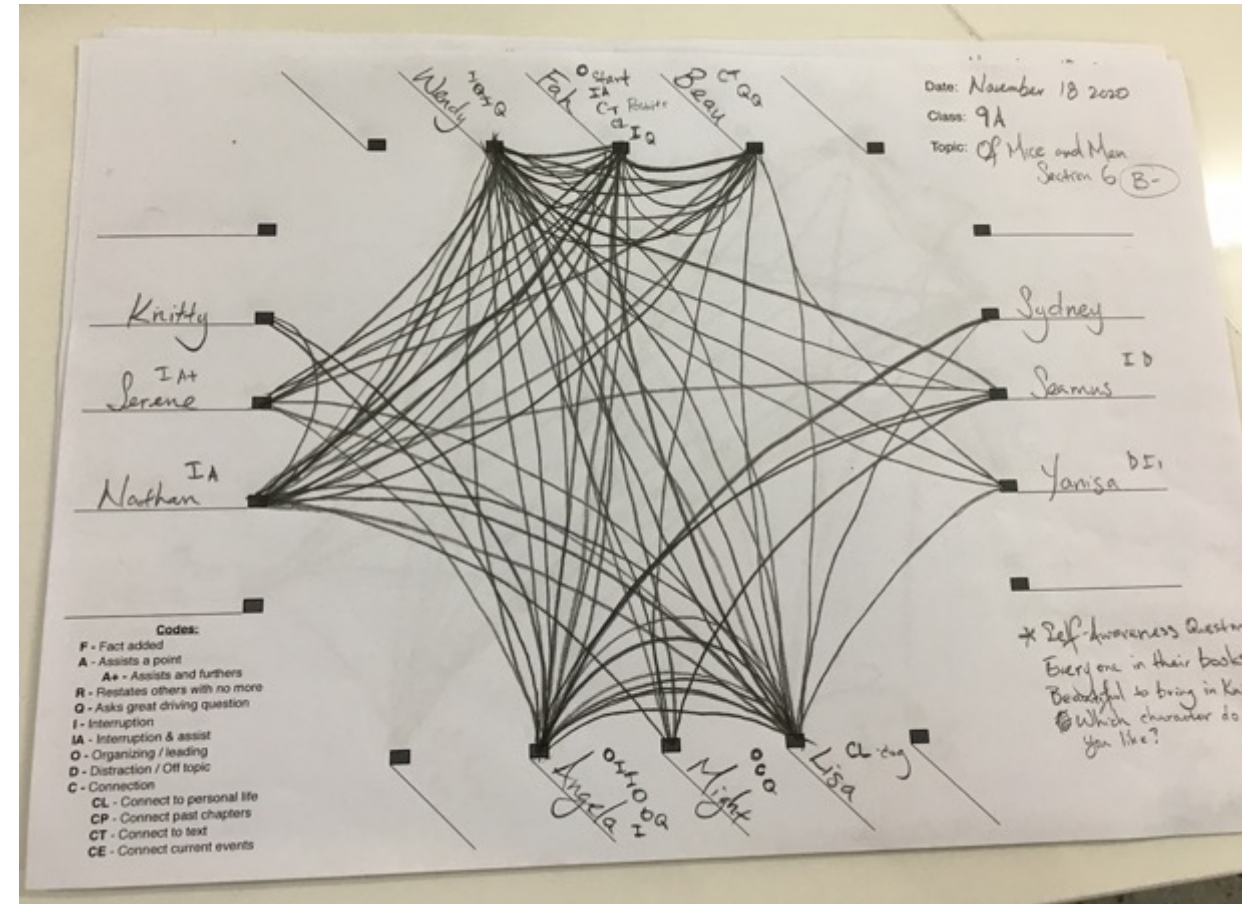 Date: November 18 2020
Class: 9A
Topic: Of Mice and Men
Section 6 B-
Wendy
Q
Fah
O Start
IA
CT
CL
IQ
Beau
CT
QQ
Knitty
Sydney
I A+
Serene
I D
Seamus
I A
Nathan
Yanisa
D I
Codes:
F - Fact added
A - Assists a point
A+ - Assists and furthers
R - Restates others with no more
Q - Asks great driving question
I - Interruption
IA - Interruption & assist
O - Organizing / leading
D - Distraction / Off topic
C - Connection
CL - Connect to personal life
CP - Connect past chapters
CT - Connect to text
CE - Connect current events
Angela
OQ
I
Might
Q
Lisa
CL
* Self-Awareness
Everyone in their books
Beautiful to bring in
Which character do
you like?